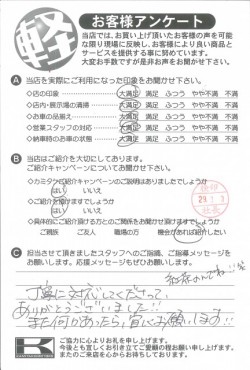 軽
お客様アンケート
当店では、お買い上げ頂いたお客様の声を可能
な限り現場に反映し、お客様により良い商品と
サービスを提供する事に努めています。
大変お手数ですが是非お声をお聞かせ下さい。
A 当店を実際にご利用になった印象をお聞かせ下さい。
◇店の印象 大満足 満足 ふつう やや不満 不満
◇店内・展示場の清掃 大満足 満足 ふつう やや不満 不満
◇お車の品揃え 大満足 満足 ふつう やや不満 不満
◇営業スタッフの対応 大満足 満足 ふつう やや不満 不満
◇納車時のお車の状態 大満足 満足 ふつう やや不満 不満
B 当店はご紹介を大切にしております。
ご紹介キャンペーンについてお聞かせ下さい。
◇カミタケご紹介キャンペーンのご説明はありましたでしょうか
はい いいえ
◇ご紹介を頂けますでしょうか
はい いいえ
29.1.3
◇具体的にご紹介頂ける方とのご関係をお聞かせ頂けますでしょうか
ご親族 ご友人 職場の方 機会があれば紹介したい
C 担当させて頂きましたスタッフへのご指摘、ご指導をお聞かせ
お願いします。応援メッセージもぜひお願いします。
丁寧に対応してくださって
ありがとうございました!!
また何かあったら、宜しくお願いします!!
K
ご協力に心よりお礼を申し上げます。
今後とも宜しくお引き立てご愛顧の程お願い申し上げます。
またのご来店を心からお待ちしております。